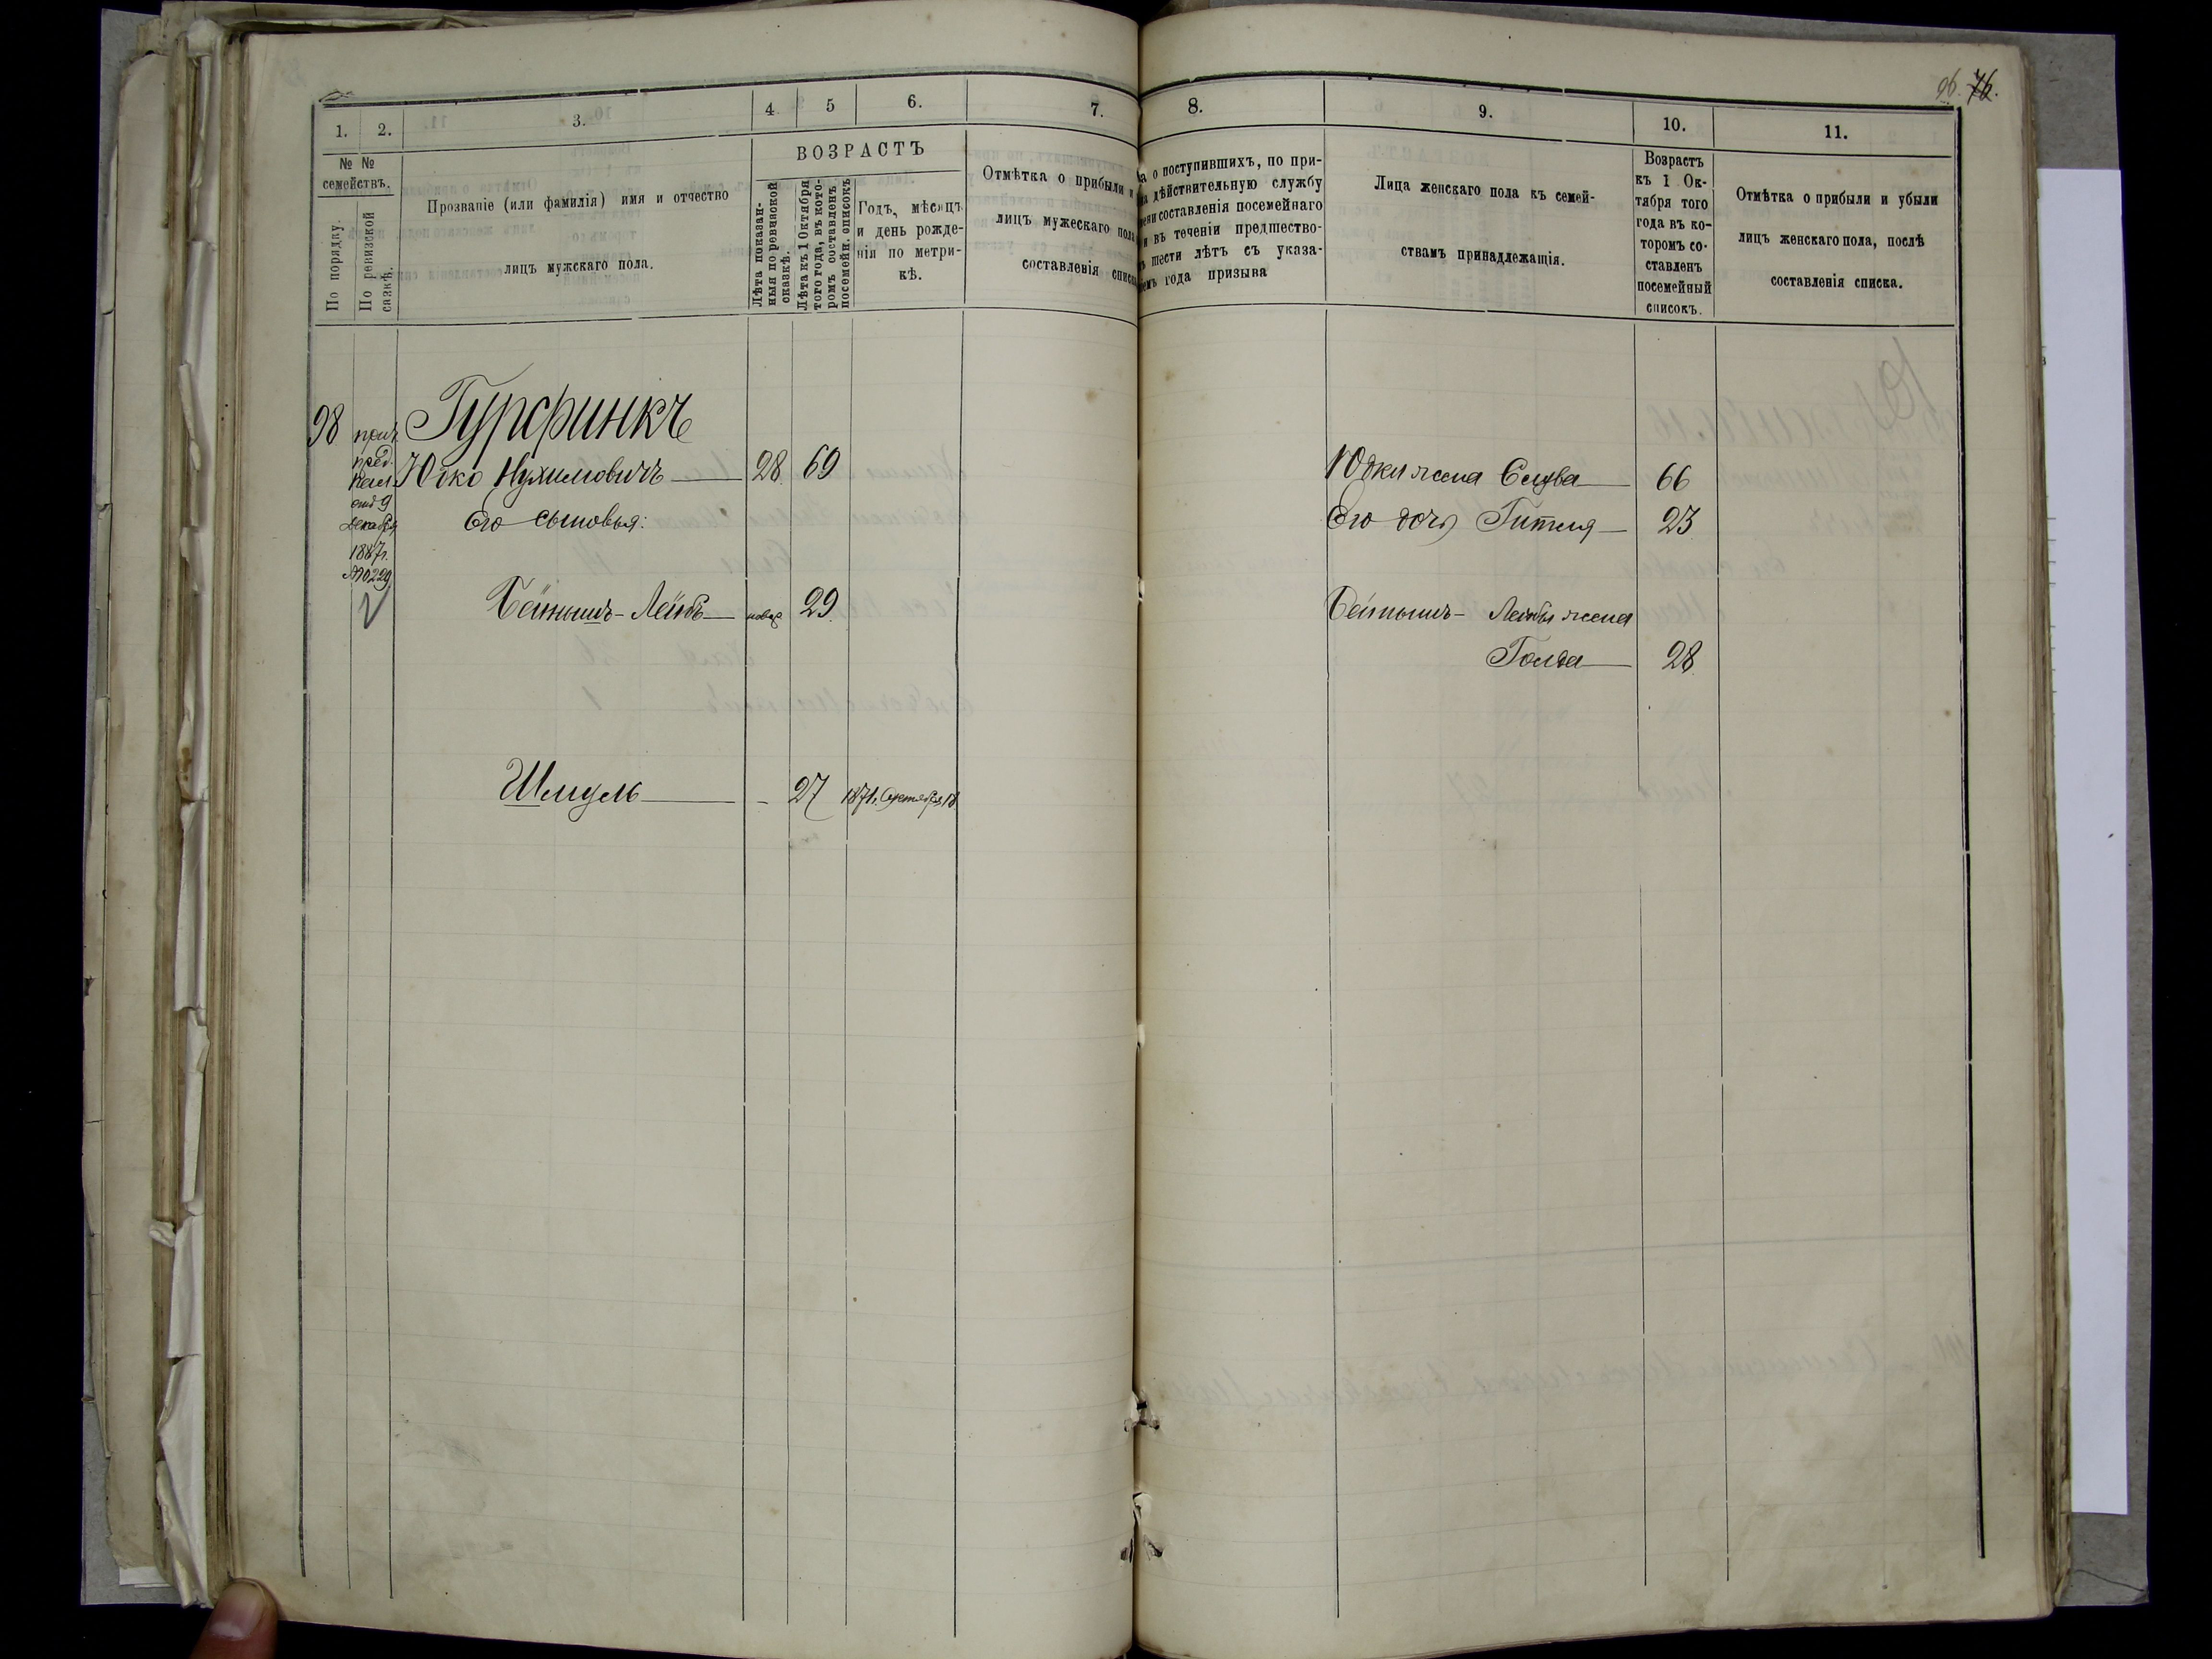 96. 76.
1.
2.
3.
4
5
6.
7.
8.
9.
10.
11.
№ №
семействъ.
По порядку.
По ревизской
сазкѣ.
Прозваніе (или фамилія) имя и отчество
лицъ мужскаго пола.
ВОЗРАСТЪ
Лѣта показан-
ныя по ревизской
сказкѣ.
Лѣта къ 1 Октября
того года, въ кото-
ромъ составленъ
посемейн. списокъ
Годъ, мѣсяцъ
и день рожде-
нія по метри-
кѣ.
Отмѣтка о прибыли и
лицъ мужескаго пола
составленія списка
ка о поступившихъ, по при-
на дѣйствительную службу
мени составленія посемейнаго
и въ теченіи предшество-
ъ шести лѣтъ съ указа-
емъ года призыва
Лица женскаго пола къ семей-
ствамъ принадлежащія.
Возрастъ
къ 1 Ок-
тября того
года въ ко-
торомъ со-
ставленъ
посемейный
списокъ.
Отмѣтка о прибыли и убыли
лицъ женскаго пола, послѣ
составленія списка.
98
Гурфинкъ
Юдко Нухимовичъ 28 69
Его сыновья:
отъ 9
Декабря
1887 г.
№ 10229
Бейнышъ-Лейбъ 29
Шмуль - 27 1871 г. Сентября 18
Юдки жена Слува 66
Его дочь Гителя 23
Бейнышъ-Лейбы жена
Голда 28